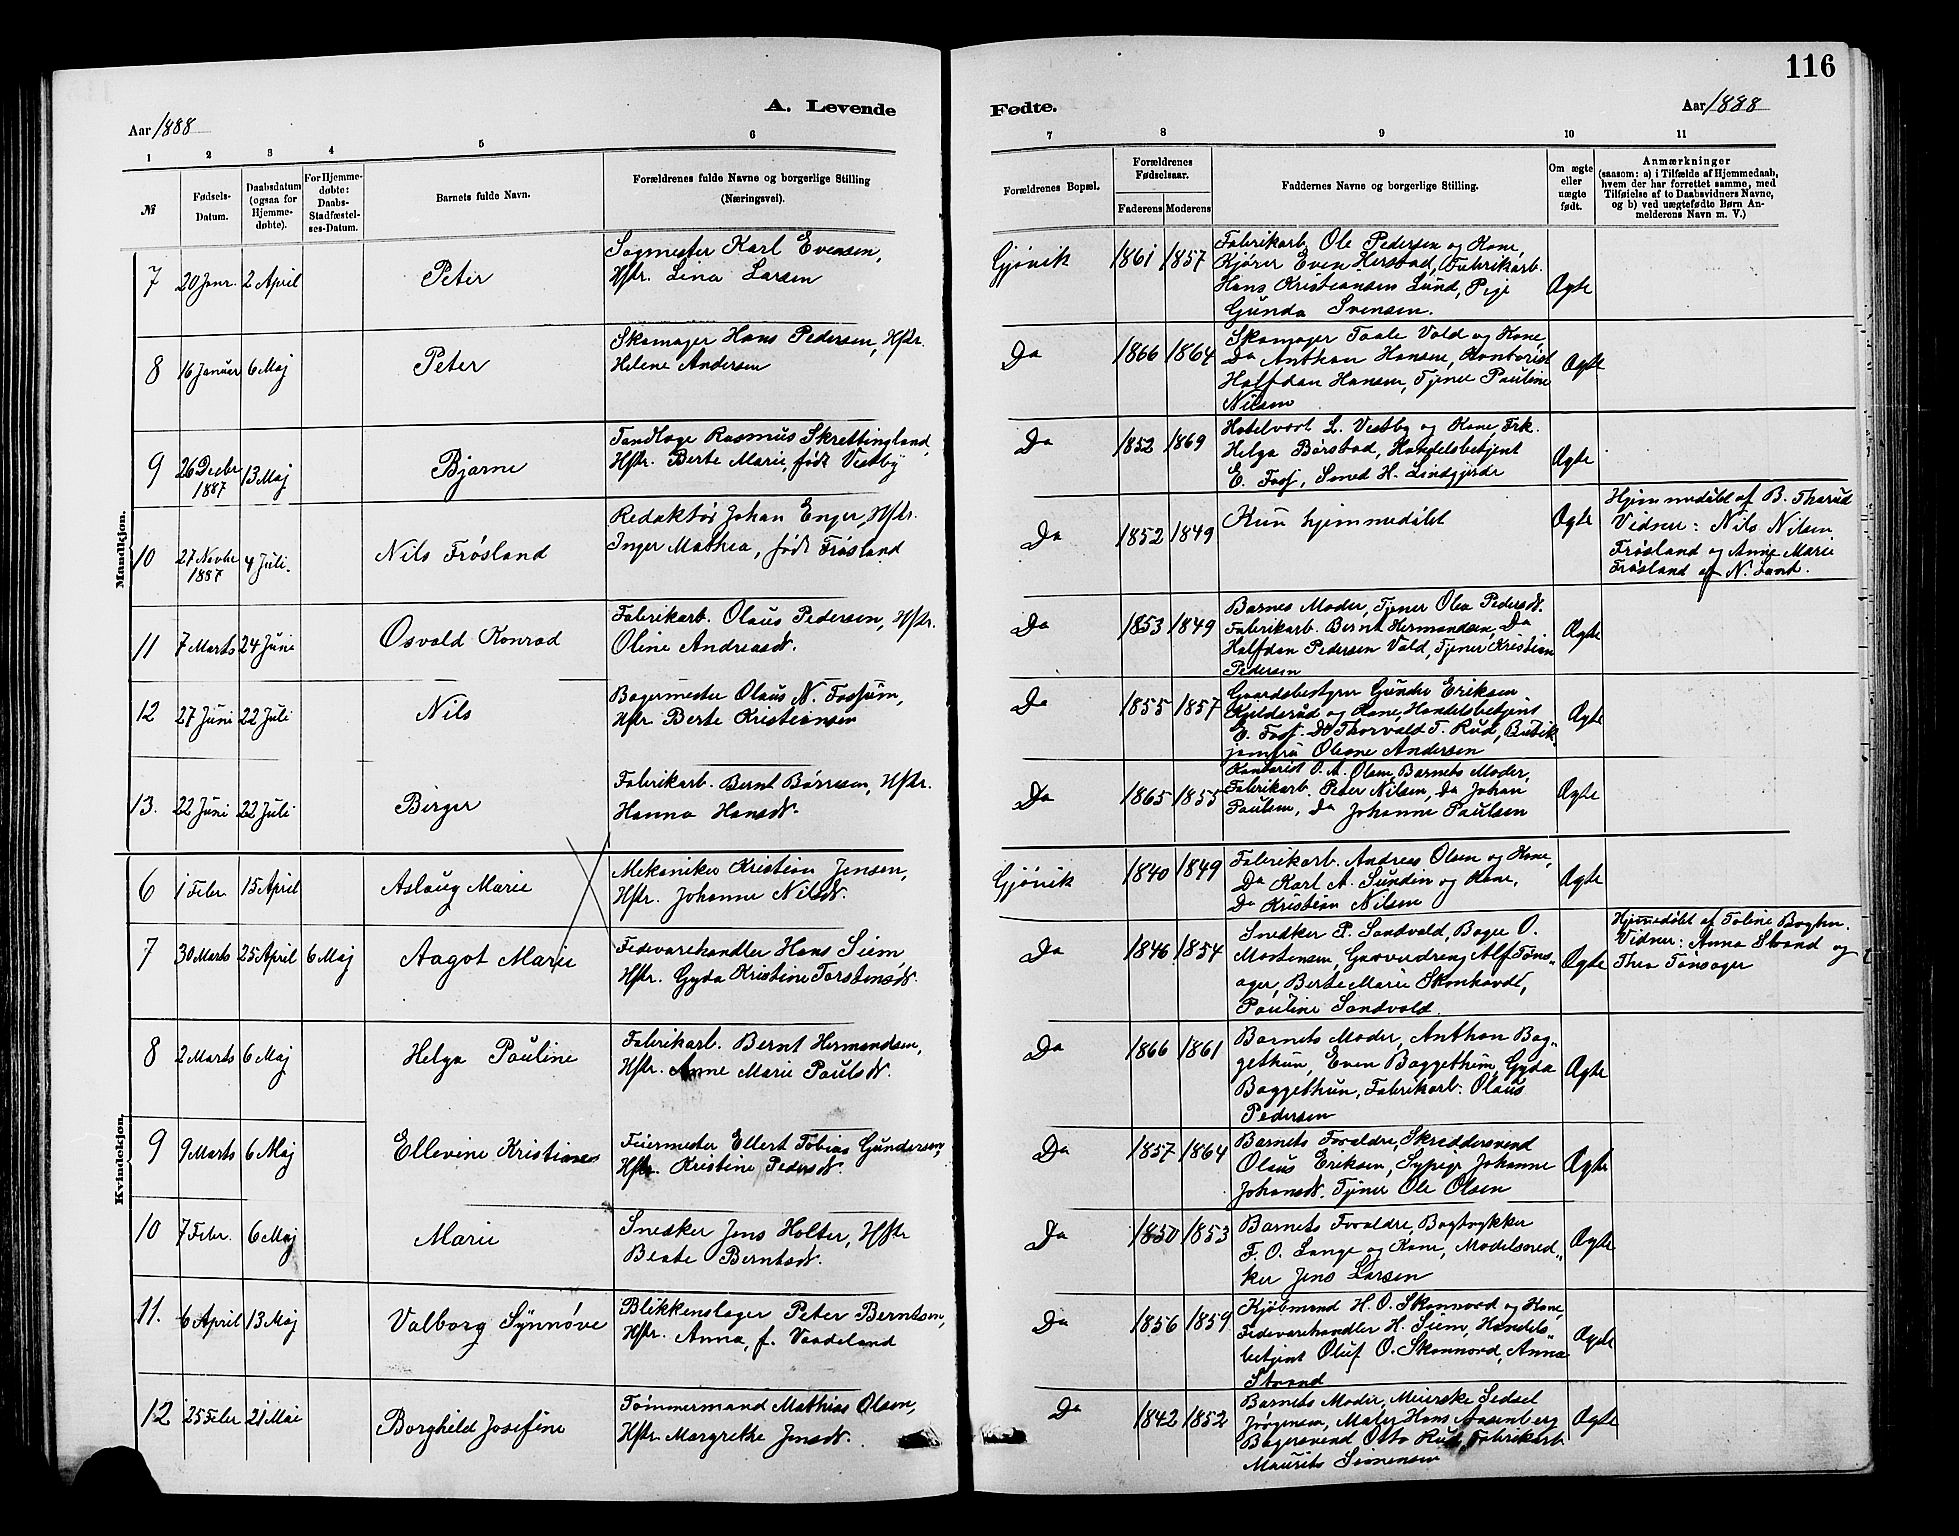 116
A. Levende
Fødte.
Aar 1888
Aar 1888
1 2 3 4 5 6 7 8 9 10 11
№
Fødsels-
Datum.
Daabsdatum
(ogsaa for
Hjemme-
døbte).
For Hjemme-
døbte:
Daabs-
Stadfæstel-
ses-Datum.
Barnets fulde Navn.
Forældrenes fulde Navne og borgerlige Stilling
(Næringsvei).
Forældrenes Bopæl.
Forældrenes
Fødselsaar.
Faderens Moderens
Faddernes Navne og borgerlige Stilling.
Om ægte
eller
uægte
født.
Anmærkninger
(saasom: a) i Tilfælde af Hjemmedaab,
hvem der har forrettet samme, med
Tilføielse af to Daabsvidners Navne,
og b) ved uægtefødte Børn An-
melderens Navn m. V.)
Mandkjøn.
7 20 Janr. 2 April Peter
Sagmester Karl Evensen,
Hstr. Lina Larsen
Gjøvik 1861 1857
Fabrikarb. Ole Pedersen og Kone,
Kjører Even Kerstad, Fabrikarb.
Hans Kristiansen Lund, Pige
Gunda Svensen.
Ægte
8 16 Januer 6 Maj Peter
Skomager Hans Pedersen, Hstr.
Helene Andersen
Do 1866 1864
Skomager Taale Vold og Kone,
Do Anthon Hansen, Kontorist
Halfdan Hansen, Tjener Pauline
Nilsen
Ægte
9 26 Decbr 1887 13 Maj Bjarne
Tandlæge Rasmus Skrettingland,
Hstr. Berte Marie, født Vestby
Do 1852 1869
Hotelvært L. Vestby og Kone, Frk.
Helga Børstad, Handelsbetjent
E. Foss, Smed H. Lindgjerde
Ægte
10 27 Novbr 1887 4 Juli. Nils Frøsland
Redaktør Johan Enger, Hstr.
Inger Mathea, født Frøsland
Do 1852 1849
Kun hjemmedøbt
Ægte
Hjemmedøbt af B. Tharud
Vidner: Nils Nilsen
Frøsland og Anne Marie
Frøsland af N. Land.
11 7 Marts 24 Juni Osvald Konrad
Fabrikarb. Olaus Pedersen, Hstr.
Oline Andreasd.
Do 1853 1849
Barnes Moder, Tjener Olea Pedersd.
Fabrikarb. Bernt Hermandsen, Do
Halfdan Pedersen Vold, Tjener Kristian
Pedersen
Ægte
12 27 Juni 22 Juli Nils
Bagermester Olaus N. Fossum,
Hstr. Berte Kristiansen
Do 1855 1857
Gaardsbestyrer Gunder Eriksen
Kjelderud og Kone, Handelsbetjent
E. Foss. Do Thorvald T. Rud, Butik-
jomfru Oleane Andersen
Ægte
13. 22 Juni 22 Juli Birger
Fabrikarb. Bernt Børresen, Hstr.
Hanna Hansd.
Do 1865 1855
Kontorist O. A. Olsen, Barnets Moder,
Fabrikarb. Peter Nilsen, Do Johan
Paulsen, Do Johanne Paulsen
Ægte
Kvindekjøn.
6 1 Febr. 15 April Aslaug Marie
Mekaniker Kristian Jensen,
Hstr. Johanne Nilsd.
Gjøvik 1840 1849
Fabrikarb. Andreas Olsen og Kone,
Do Karl A. Sundin og Kone,
Do Kristian Nilsen
Ægte
7 30 Marts 25 April 6 Maj Aagot Marie
Fedevarehandler Hans Siem
Hstr. Gyda Kristine Torstensd.
Do 1846 1854
Snedker P. Sandvold, Bager O.
Mortensen, Garversvend Alf Tøns-
ager, Berte Marie Skonhovd,
Pauline Sandvold.
Ægte
Hjemmedøbt af Toline Bagthn.
Vidner: Anna Strand og
Thea Tønsager
8 2 Marts 6 Maj Helga Pauline
Fabrikarb. Bernt Hermandsen,
Hstr. Anne Marie Paulsd.
Do 1866 1861
Barnets Moder, Anthon Bag-
gethun, Even Baggethun, Gyda
Baggethun, Fabrikarb. Olaus
Pedersen
Ægte
9 9 Marts 6 Maj Ellevine Kristiane
Feiermester Ellert Tobias Gundersen,
Hstr. Kristine Pedersd.
Do 1857 1864
Barnets Forældre, Skræddersvend
Olaus Eriksen, Sypige Johanne
Johansd. Tjener Ole Olsen
Ægte
10 7 Febr. 6 Maj Marie
Snedker Jens Holter, Hstr
Beate Berntsd.
Do 1850 1853
Barnets Forældre, Bogtrykker
F. O. Lange og Kone, Modelsned-
ker Jens Larsen
Ægte
11. 6 April 13 Maj Valborg Synnøve
Blikkenslager Peter Berntsen,
Hstr. Anna, f. Vaadeland
Do 1856 1859
Kjøbmand H. O. Skonnord og Kone,
Fedevarehandler H. Siem, Handels-
betjent Oluf O. Skonnord, Anna
Strand
Ægte
12 25 Febr 21 Mai Borghild Josefine
Tømmermand Mathias Olsen,
Hstr. Margrethe Jensd.
Do 1842 1852
Barnets Moder, Meierske Sedsel
Jørgensen, Maler Hans Aasenberg
Bagersvend Otto Rud, Fabrikarb
Maurits Simensen
Ægte